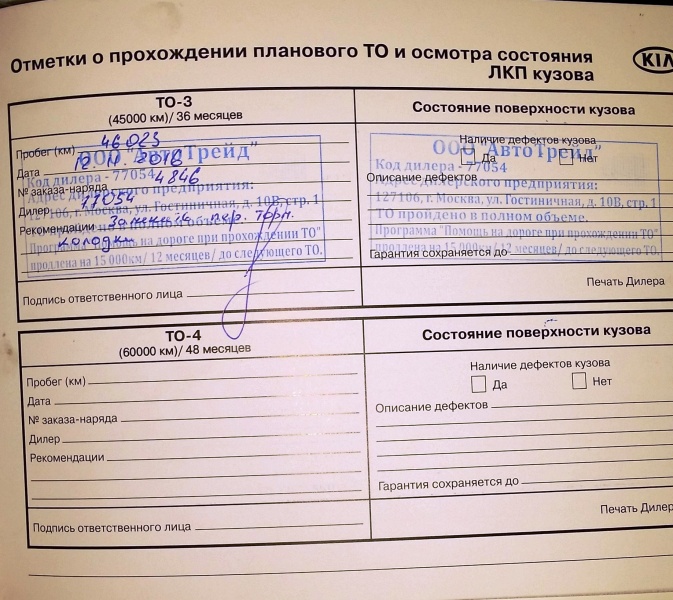 Отметки о прохождении планового ТО и осмотра состояния
ЛКП кузова
KIA
ТО-3
(45000 км)/ 36 месяцев
Пробег (км) 46023
Дата 12.11.2016
№ заказа-наряда 4846
Дилер 77054
Рекомендации Замена пер. торм.
колодки
Подпись ответственного лица
ООО "АвтоТрейд"
Код дилера - 77054
Адрес дилерского предприятия:
127106, г. Москва, ул. Гостиничная, д. 10В, стр. 1
ТО пройдено в полном объеме.
Программа "Помощь на дороге при прохождении ТО"
продлена на 15 000км/ 12 месяцев/ до следующего ТО.
Состояние поверхности кузова
Наличие дефектов кузова
Да Нет
Описание дефектов
Гарантия сохраняется до
Печать Дилера
ООО "АвтоТрейд"
Код дилера - 77054
Адрес дилерского предприятия:
127106, г. Москва, ул. Гостиничная, д. 10В, стр. 1
ТО пройдено в полном объеме.
Программа "Помощь на дороге при прохождении ТО"
продлена на 15 000км/ 12 месяцев/ до следующего ТО.
ТО-4
(60000 км)/ 48 месяцев
Пробег (км)
Дата
№ заказа-наряда
Дилер
Рекомендации
Подпись ответственного лица
Состояние поверхности кузова
Наличие дефектов кузова
Да Нет
Описание дефектов
Гарантия сохраняется до
Печать Дилер